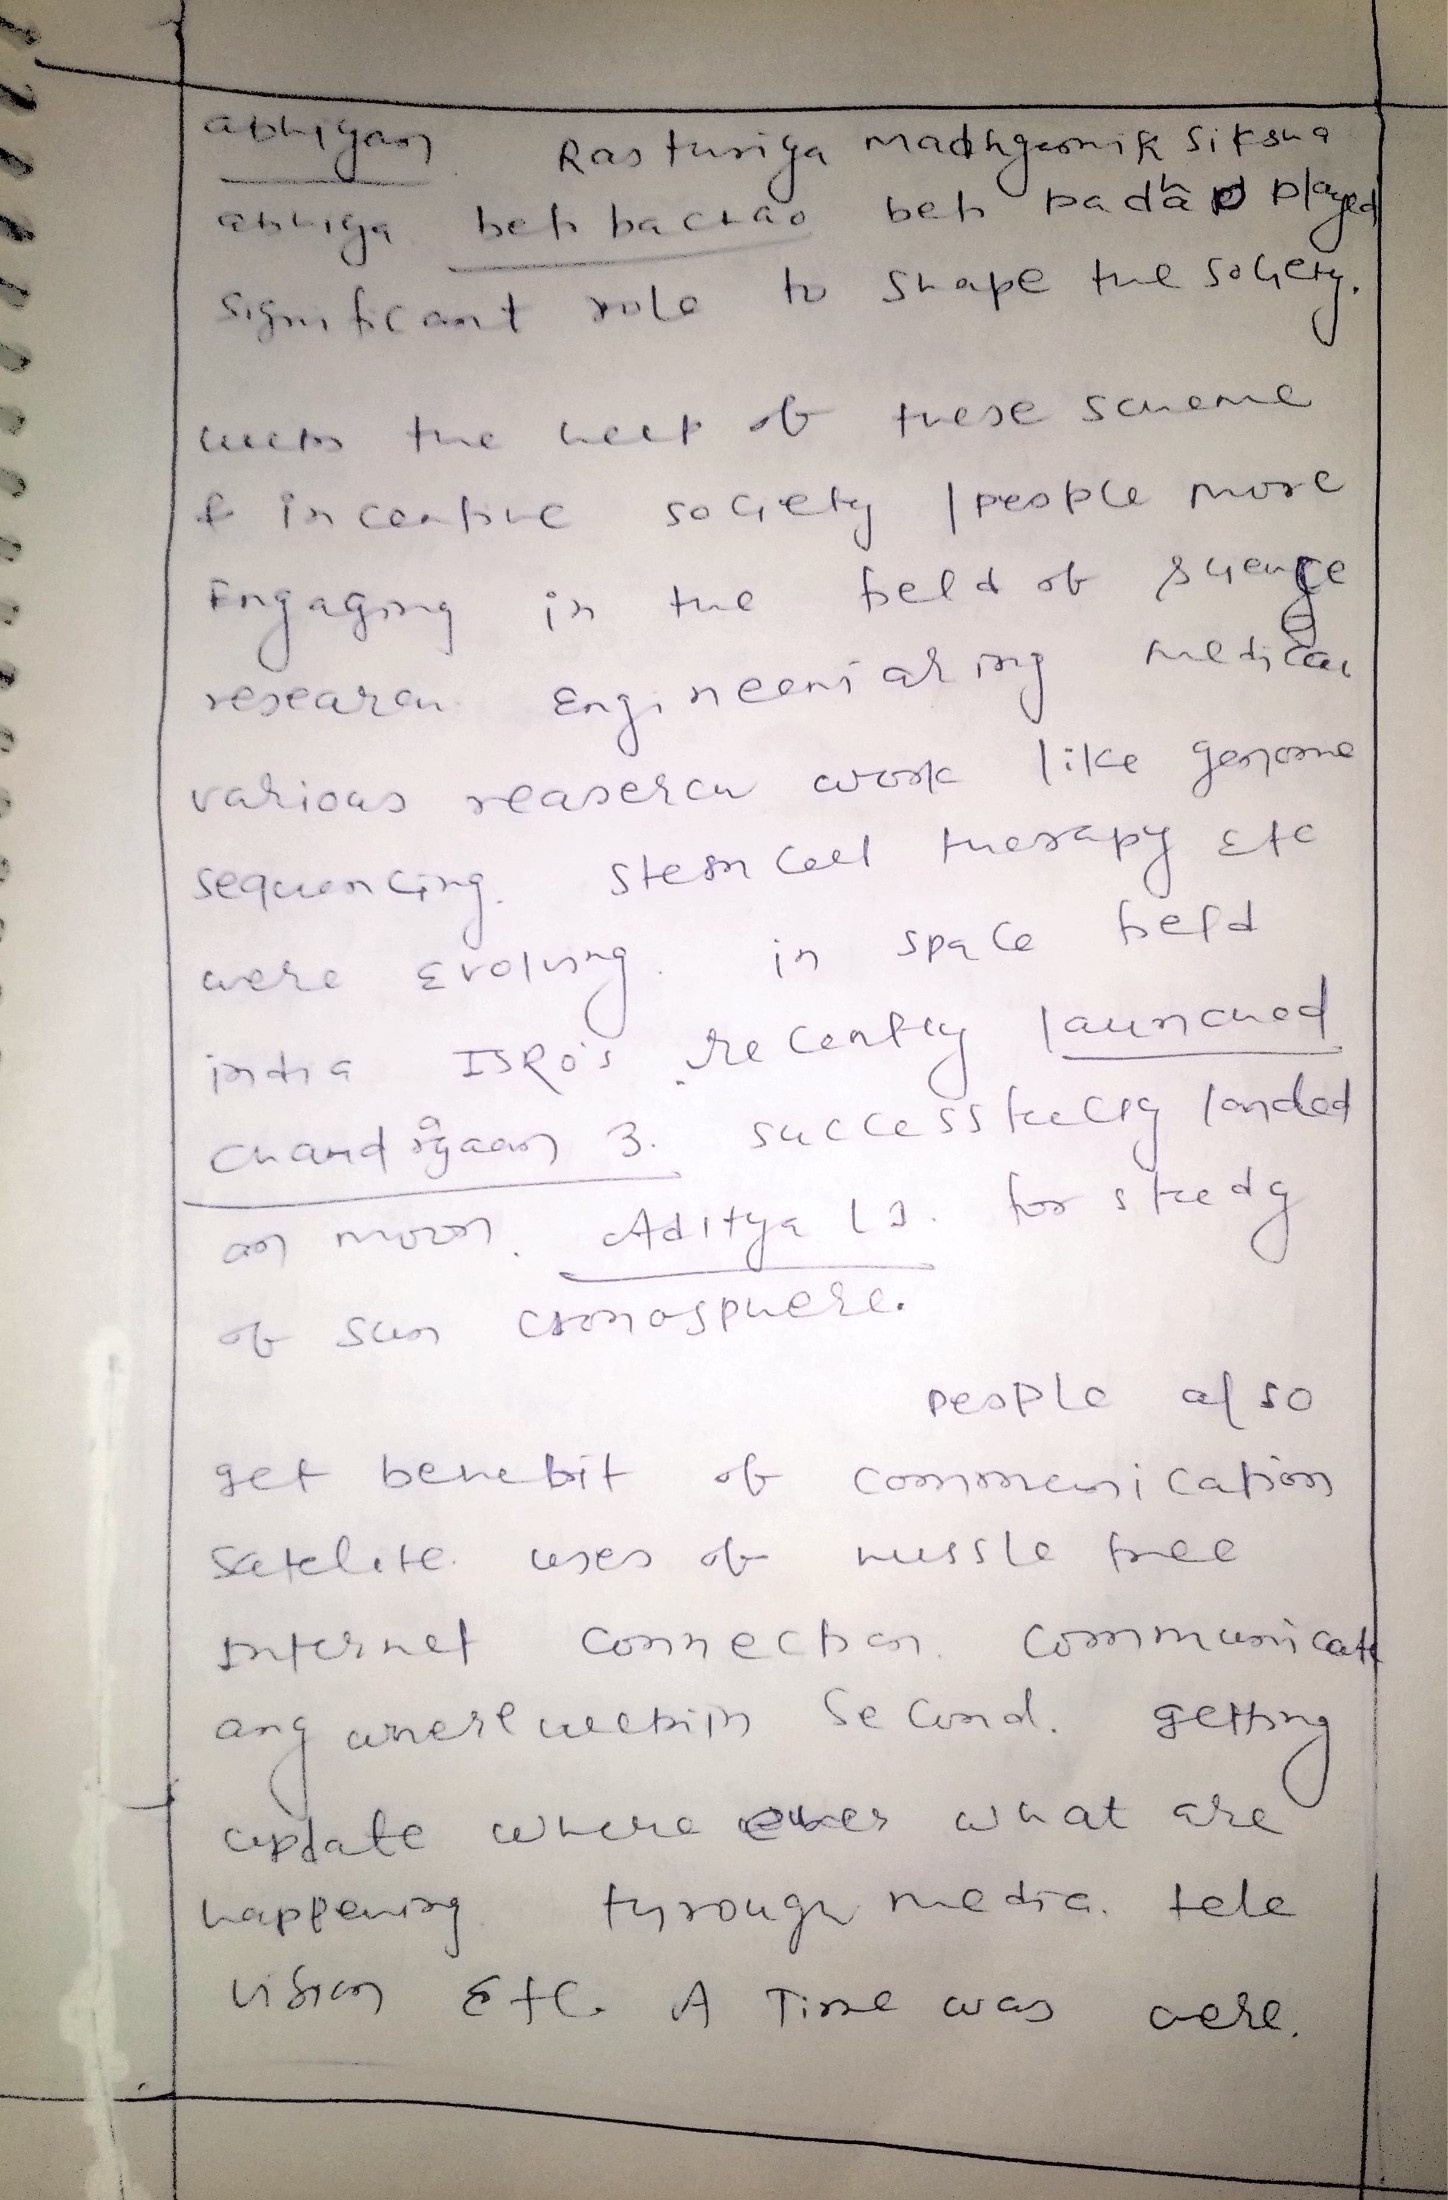 abhiyan Rasturiya madhyamik siksha
abhiya beti bachao beti padhao played
significant role to shape the society.
with the help of these scheme
& incentive society / people more
Engaging in the field of science
research Engineeniaring medical
various reaserch work like genome
sequencing. stem cell therapy Etc
were Evolving. in space field
india ISRO's recently launched
chandrayaan 3. successfully landed
on moon. Aditya L1. for study
of sun cronosphere.
people also
get benefit of communication
satelite. uses of hussle free
Internet connection. communicate
any where within second. getting
update where ever what are
happening through media. tele
vision Etc. A Time was were.